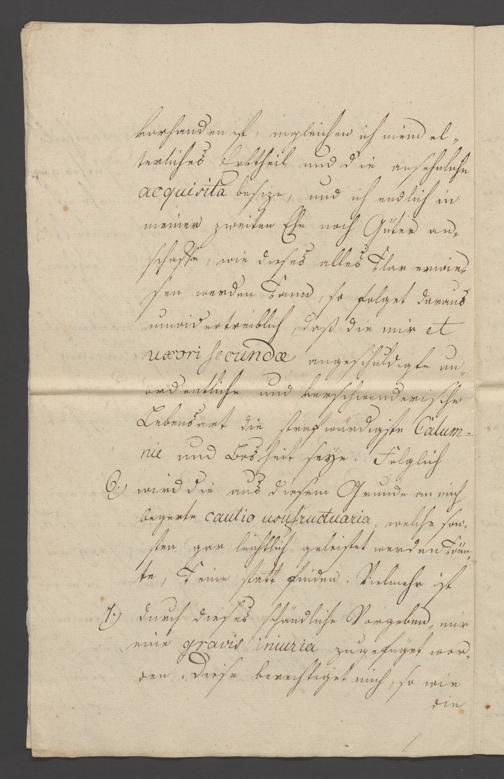 vorhanden ist, ingleichen ich mein el-
terliches Erbtheil und die ansehnliche
acquisita besize, und ich endlich in
meiner zweiten Ehe noch Güter an-
schaffe, wie dieses alles klar erwie-
sen werden kann, so folget daraus
unwidertreiblich, daß die mir et
uxori secundæ angeschuldigte un-
ordentliche und verschwenderische
Lebensart die strafwürdigste Calum-
nie und Bosheit seye. Folglich
6.) wird die aus diesem Grunde an mich
begerte cautio usufructuaria, welche son-
sten gar leichtlich geleistet werden könn-
te, keine statt finden. Vielmehr ist
7.) durch dieses schändliche Vorgeben, mir
eine gravis iniuria zugefüget wor-
den. Diese berechtiget mich, so wie
die